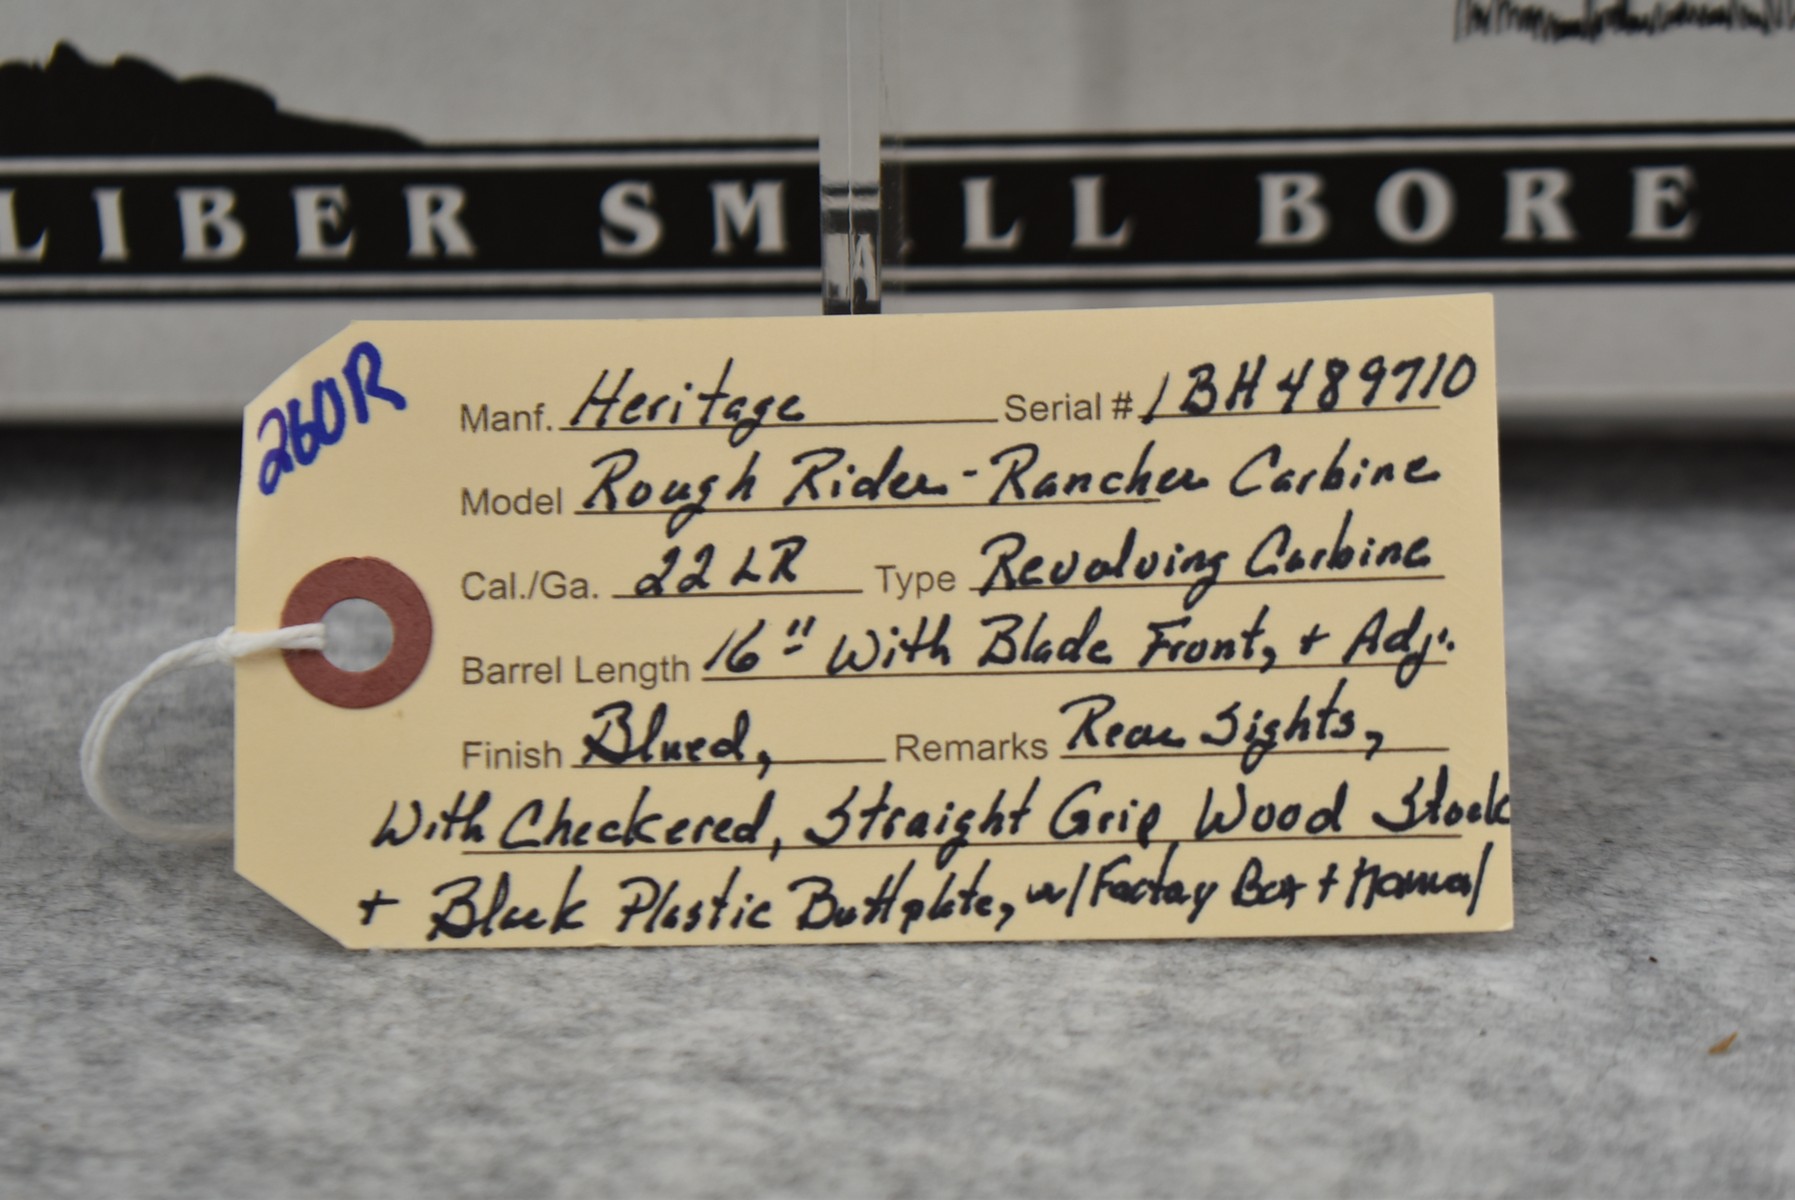 LIBER SMALL BORE
260R
Manf. Heritage Serial # 1BH489710
Model Rough Rider - Rancher Carbine
Cal./Ga. 22 LR Type Revolving Carbine
Barrel Length 16" With Blade Front, + Adj.
Finish Blued, Remarks Rear Sights,
With Checkered, Straight Grip Wood Stock
+ Black Plastic Buttplate, w/ Factory Box + Manual